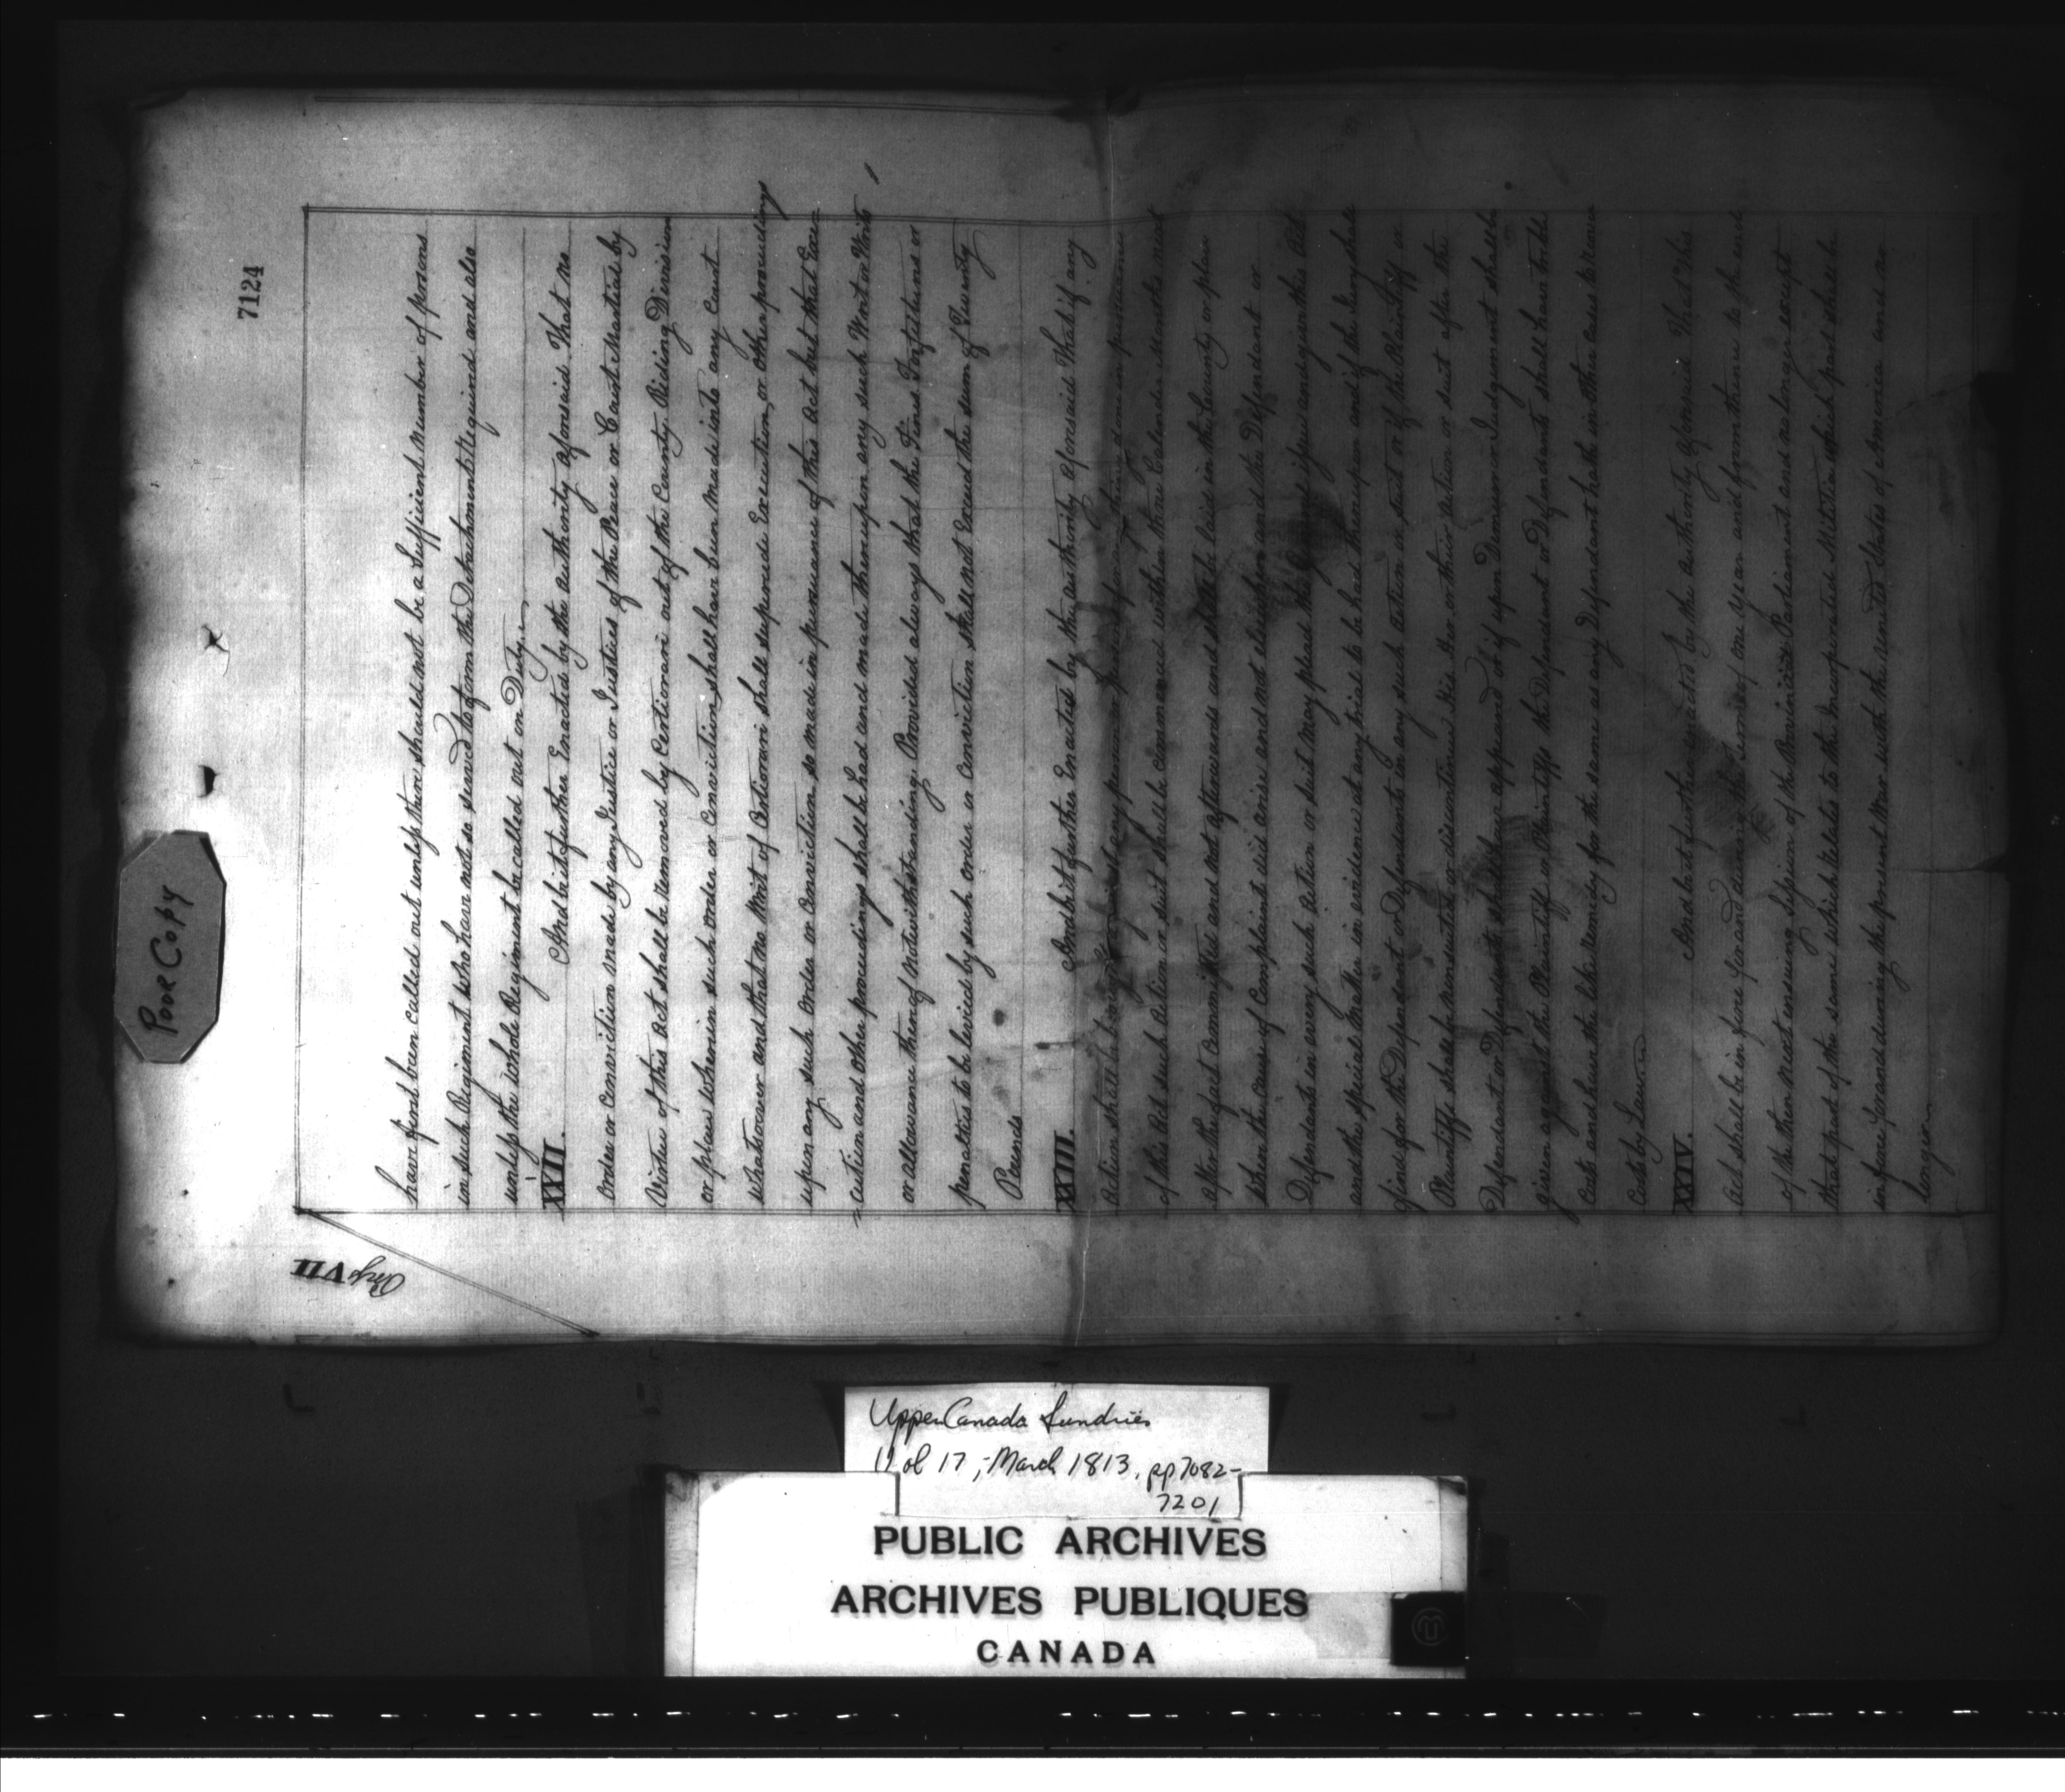 7124
POOR COPY
Page VII
have first been called out unless there should not be a sufficient Number of persons
in such Regiment who have not so served to form the Detachment Required and also
unless the whole Regiment be called out on Duty
XXXII.
And be it further Enacted by the authority aforesaid That no
order or conviction made by any Justice or Justices of the Peace or Court Martial by
Virtue of this Act shall be removed by Certiorari out of the County Riding Division
or place wherein such order or Conviction shall have been Made into any Court
whatsoever and that no Writ of Certiorari shall supersede Execution or other proceedings
upon any such order or Conviction so made in pursuance of this Act but that Exe-
=cution and other proceedings shall be had and made thereupon any such Writ or Writs
or allowance thereof notwithstanding Provided always that the Fines Forfeitures or
penalties to be levied by such order or Conviction shall not Exceed the sum of Twenty
Pounds
XXXIII.
And be it further Enacted by the authority aforesaid That if any
Action shall be brought against any person or persons for any thing done in pursuance
of this Act such Action or suit shall be commenced within three Calendar Months next
after the fact committed and not afterwards and shall be laid in the County or place
where the cause of Complaint did arise and not elsewhere and the Defendant or
Defendants in every such Action or suit may plead the General issue and give this Act
and the special Matter in evidence at any trial to be had thereupon and if the Jury shall
find for the Defendant or Defendants in any such Action or suit or if the Plaintiff or
Plaintiffs shall be nonsuited or discontinue his her or their Action or suit after the
Defendant or Defendants shall have appeared or if upon Demurrer Judgement shall be
given against the Plaintiff or Plaintiffs the Defendant or Defendants shall have treble
Costs and have the like remedy for the same as any Defendant hath in other cases to recover
Costs by Law
XXXIV.
And be it further enacted by the authority aforesaid That this
Act shall be in force for and during the Term of one Year and from thence to the end
of the then Next ensuing Session of the Provincial Parliament and no longer except
that part of the same which relates to the Incorporated Militia which part shall be
in force for and during the present War with the United States of America and no
longer
Upper Canada Sundries
Vol 17, - March 1813, pp 7082-
7201
PUBLIC ARCHIVES
ARCHIVES PUBLIQUES
CANADA